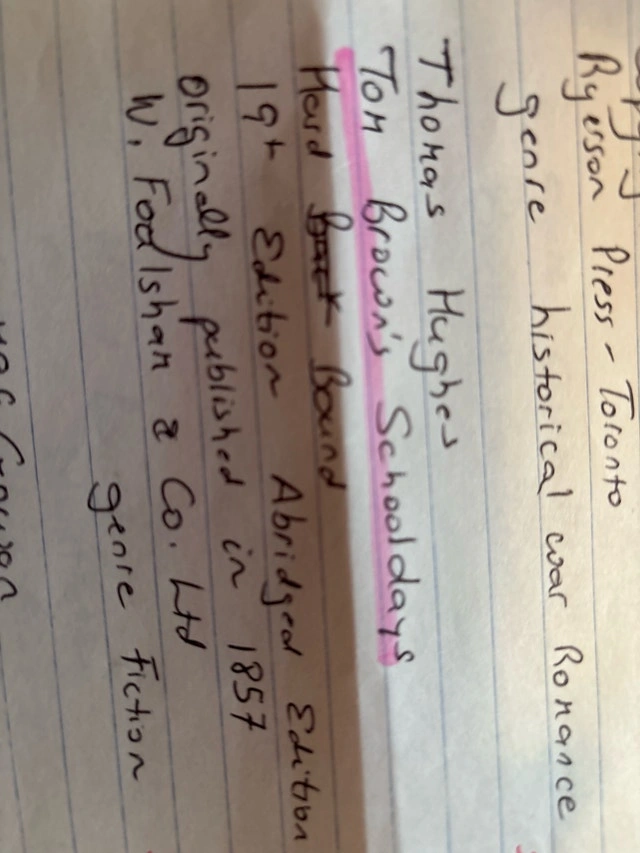 Ryerson Press - Toronto
genre historical war Romance
Thomas Hughes
Tom Brown's Schooldays
Hard Bound
19+ Edition Abridged Edition
originally published in 1857
W. Foolshan & Co. Ltd
genre fiction